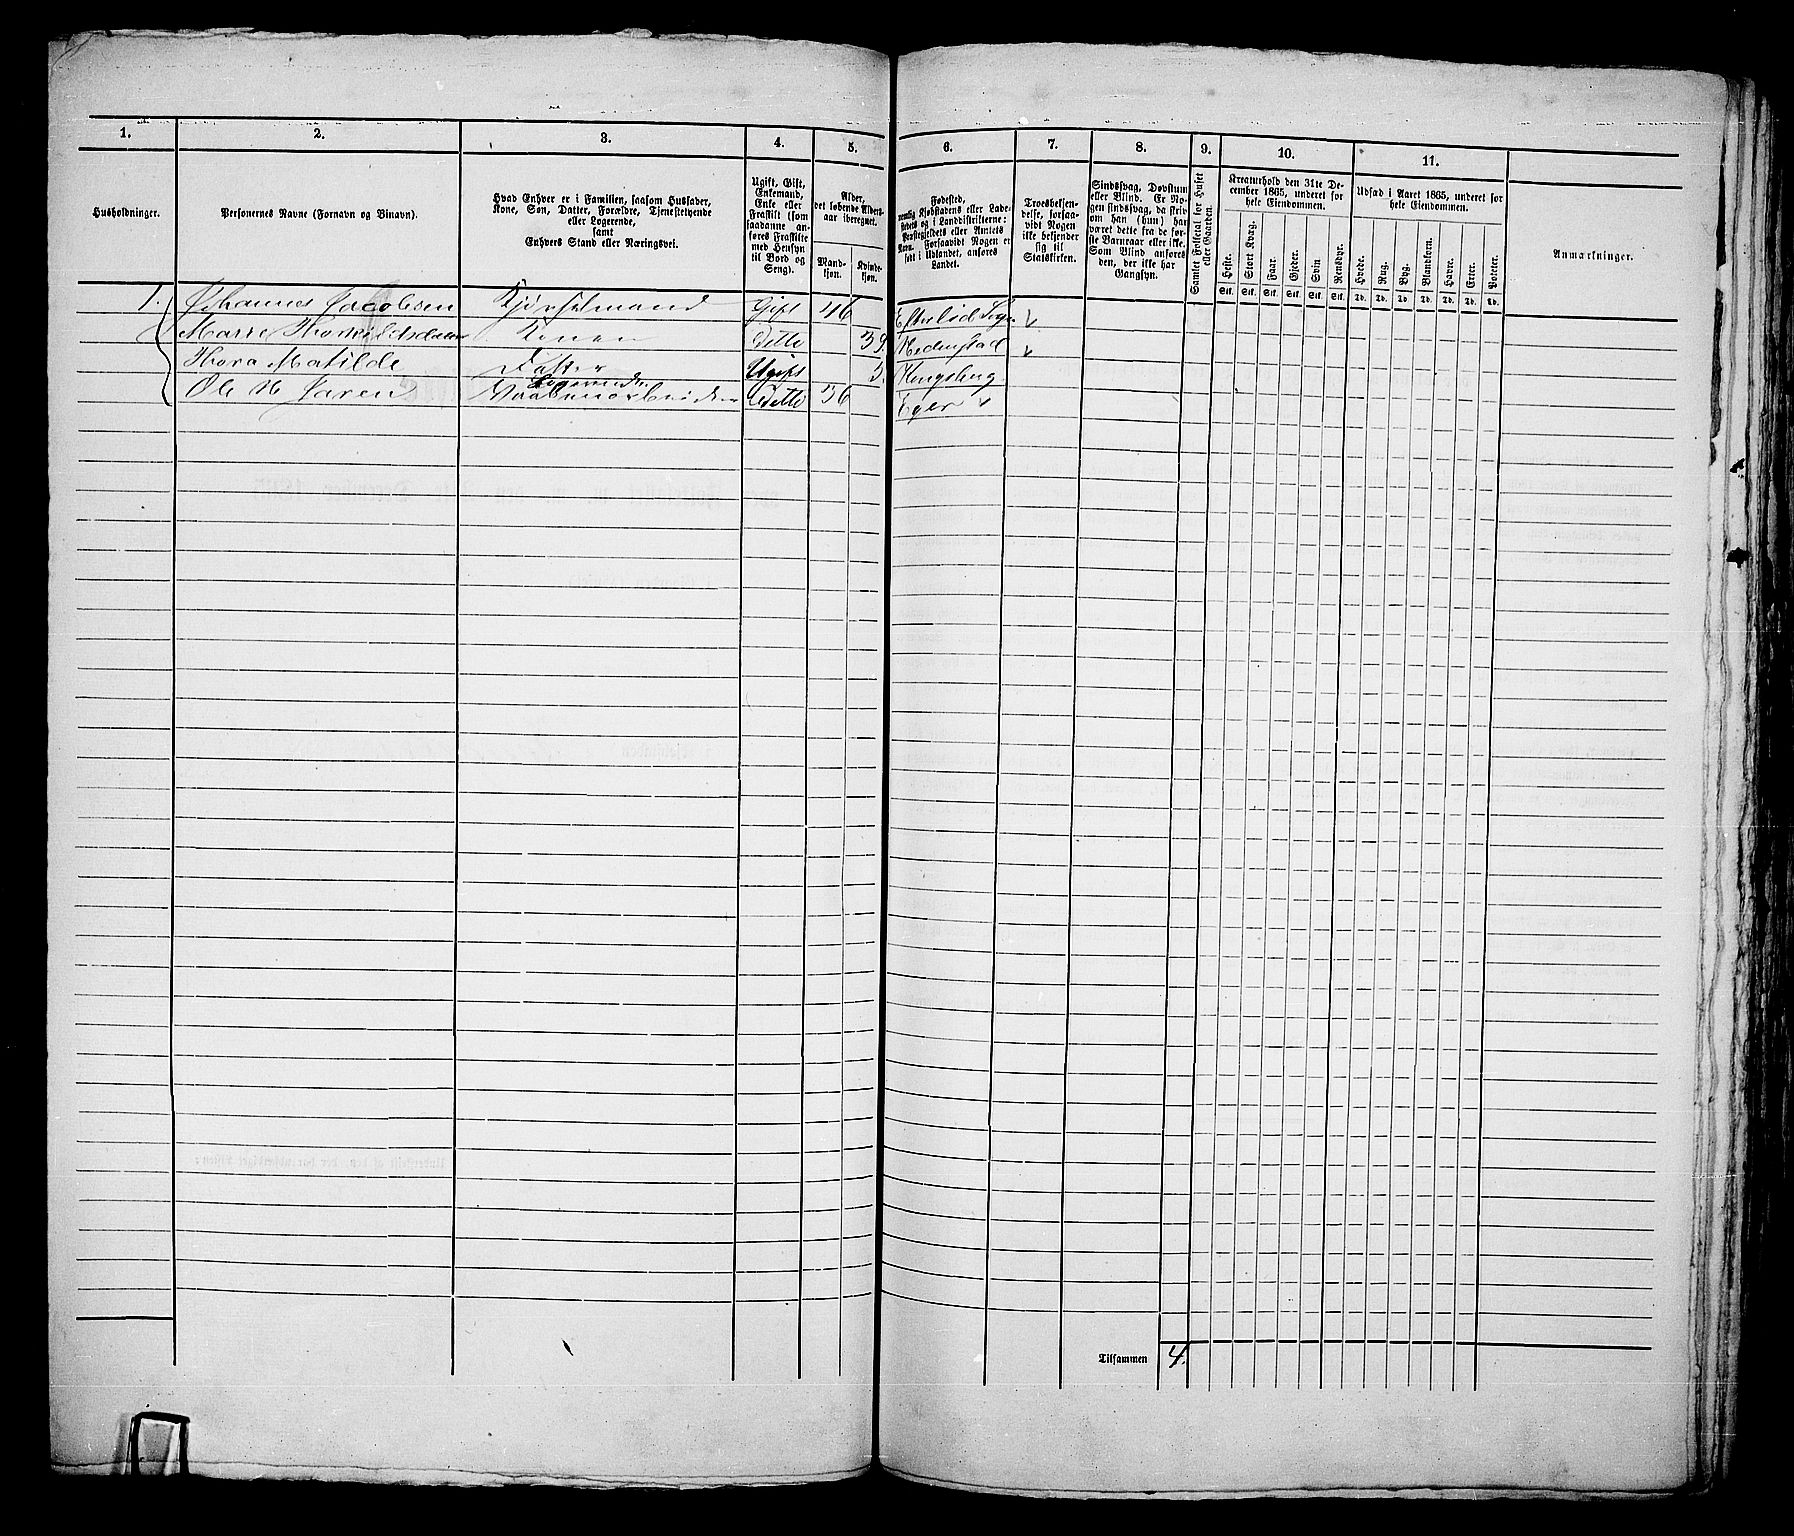 1. 2. 3. 4. 5. 6. 7. 8. 9. 10. 11.
Husholdninger.
Personernes Navne (Fornavn og Binavn).
Hvad Enhver er i Familien, saasom Husfader,
Kone, Søn, Datter, Forældre, Tjenestetyende
eller Logerende,
samt
Enhvers Stand eller Næringsvei.
Ugift, Gift,
Enkemand,
Enke eller
Fraskilt (som
saadanne an-
føres Fraskilte
med Hensyn
til Bord og
Seng).
Alder,
det løbende Alders-
aar iberegnet.
Mand-
kjøn.
Kvinde-
kjøn.
Fødested,
nemlig Kjøbstadens eller Lade-
stedets og i Landdistrikterne:
Præstegjeldets eller Amtets
Navn. Forsaavidt Nogen er
født i Udlandet, anføres
Landet.
Troesbekjen-
delse, forsaa-
vidt Nogen
ikke bekjender
sig til
Statskirken.
Sindssvag, Døvstum
eller Blind. Er No-
gen sindssvag, da skriv
om han (hun) har
været dette fra de før-
ste Barnaar eller ikke.
Som Blind anføres
den, der ikke har
Gangsyn.
Samlet Folketal for Huset
eller Gaarden.
Kreaturhold den 31te De-
cember 1865, underet for
hele Eiendommen.
Heste. Stort Kvæg. Faar. Gjeder. Svin Rensdyr.
Stk. Stk. Stk. Stk. Stk. Stk.
Udsæd i Aaret 1865, underet for
hele Eiendommen.
Hvede. Rug. Byg. Blandkorn. Havre. Erter. Poteter.
Td. Td. Td. Td. Td. Td. Td.
Anmærkninger.
1. Johannes Jacobsen Gift 46
Marre Thorkildsdatter Konen Detto 39.
Thora Matilde Datter Ugift 3. Kongsberg
Ole H Jaren Logerende Vaabenarbeider Detto 36 Eger
Tilsammen 4.